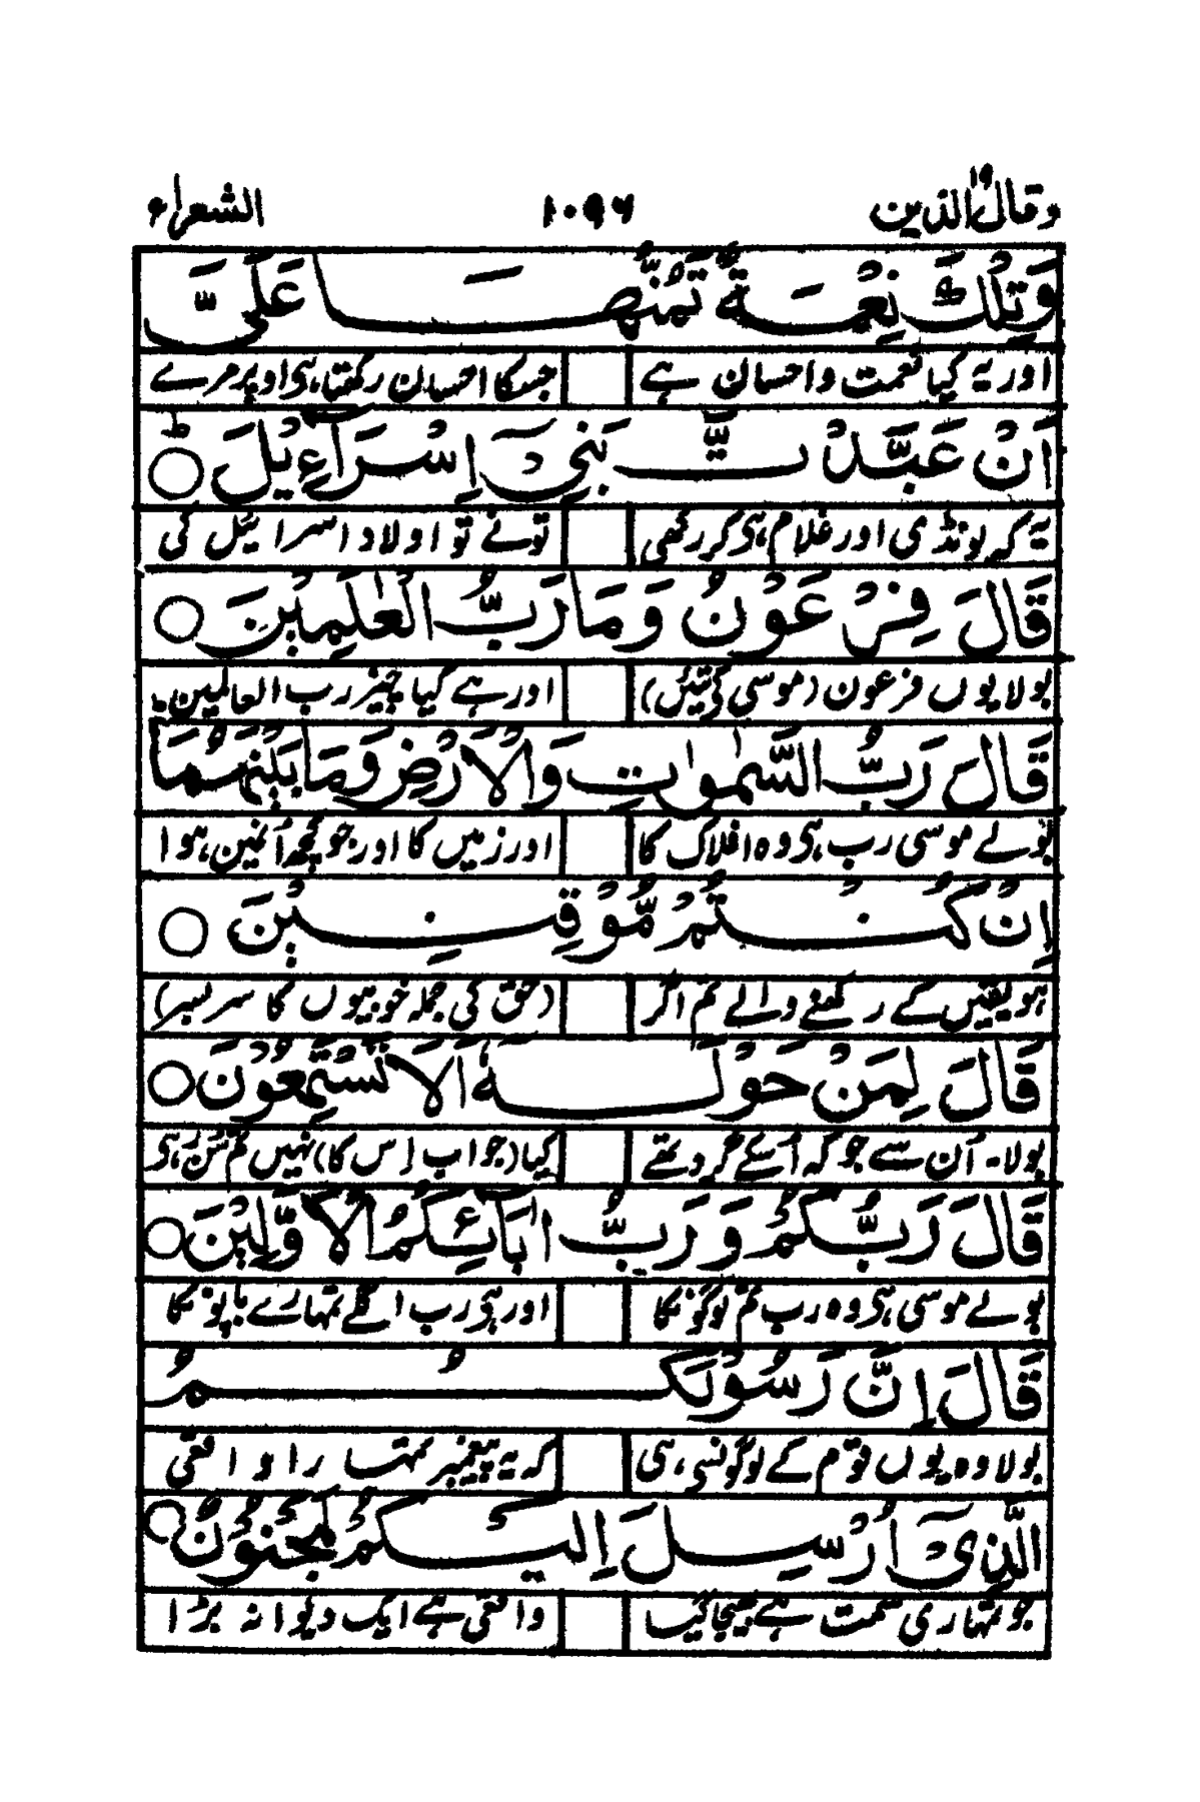 وقال الذین ۱۹ ۱۰۹۶ الشعراء
وَتِلْكَ نِعْمَةٌ تَمُنُّهَا عَلَيَّ
اور یہ کیا نعمت واحسان ہے جسکا احسان رکھتا ہی اوپر مرے
اَنْ عَبَّدْتَّ بَنِيْٓ اِسْرَآءِيْلَ ○ؕ
یہ کہ لونڈی اور غلام ہی کر رکھی تونے تو اولاد اسرائیل کی
قَالَ فِرْعَوْنُ وَمَا رَبُّ الْعٰلَمِيْنَ ○
بولا یوں فرعون (موسی کی تئیں) اور ہے کیا چیز رب العالمین
قَالَ رَبُّ السَّمٰوٰتِ وَالْاَرْضِ وَمَا بَيْنَهُمَا
بولے موسی رب ہی وہ افلاک کا اور زمیں کا اور جو کچھ اُنمین ہوا
اِنْ كُنْتُمْ مُّوْقِنِيْنَ ○
ہو یقیں کے رکھنے والے تم اگر (حق کی جملہ خوبیوں کا سر بسر)
قَالَ لِمَنْ حَوْلَهٗٓ اَلَا تَسْتَمِعُوْنَ ○
بولا۔ اُن سے جو کہ اُسکے گرد تھے کیا (جواب اِس کا) نہیں تم سُن رہی
قَالَ رَبُّكُمْ وَرَبُّ اٰبَآئِكُمُ الْاَوَّلِيْنَ ○
بولے موسی ہی وہ رب تم لوگونکا اور ہی رب اگلے تمہارے باپونکا
قَالَ اِنَّ رَسُوْلَكُمُ
بولا وہ یوں قوم کے لوگونسی ہی کہ یہ پیغمبر تمہارا واقعی
الَّذِيْٓ اُرْسِلَ اِلَيْكُمْ لَمَجْنُوْنٌ ○
جو تمہاری سمت ہے بھیجا گیا واقعی ہے ایک دیوانہ بڑا